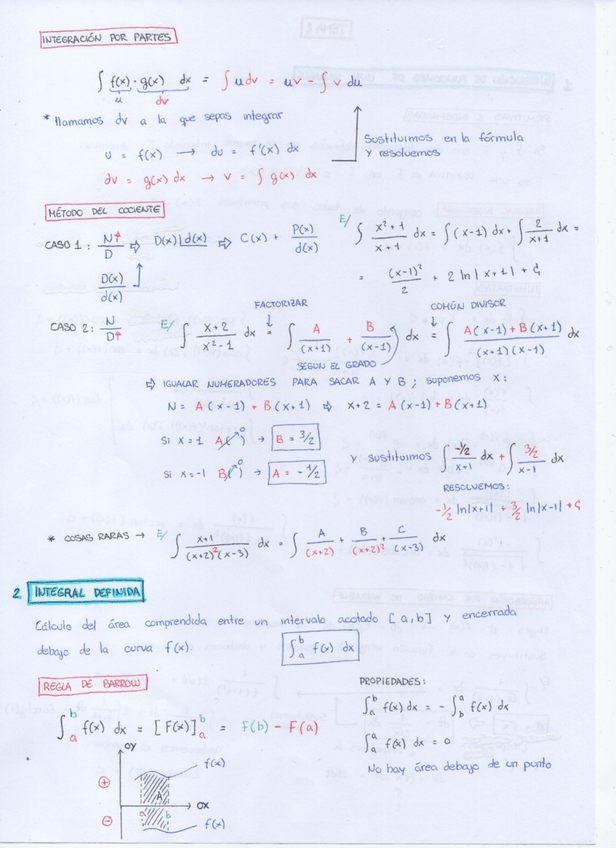 INTEGRACIÓN POR PARTES
∫ f(x) · g(x) dx = ∫ u dv = uv - ∫ v du
u dv
* llamamos dv a la que sepas integrar
u = f(x) → du = f'(x) dx
dv = g(x) dx → v = ∫ g(x) dx
Sustituimos en la fórmula
y resolvemos
MÉTODO DEL COCIENTE
CASO 1: N↑/D ⇨ D(x) | d(x) ⇨ C(x) + P(x)/d(x)
D(x)/d(x)
E/ ∫ (x²+1)/(x+1) dx = ∫ (x-1) dx + ∫ 2/(x+1) dx =
= (x-1)²/2 + 2 ln|x+1| + C
CASO 2: N/D↑
FACTORIZAR
COMÚN DIVISOR
E/ ∫ (x+2)/(x²-1) dx = ∫ A/(x+1) + B/(x-1) dx = ∫ (A(x-1)+B(x+1))/((x+1)(x-1)) dx
SEGUN EL GRADO
⇨ IGUALAR NUMERADORES PARA SACAR A Y B; suponemos x:
N = A(x-1) + B(x+1) ⇨ x+2 = A(x-1)+B(x+1)
Si x=1 A( )⁰ → B = 3/2
Si x=-1 B( )⁰ → A = -1/2
y sustituimos ∫ (-1/2)/(x+1) dx + ∫ (3/2)/(x-1) dx
RESOLVEMOS:
-1/2 ln|x+1| + 3/2 ln|x-1| + C
* COSAS RARAS → E/ ∫ (x+1)/((x+2)²(x-3)) dx = ∫ A/(x+2) + B/(x+2)² + C/(x-3) dx
2. INTEGRAL DEFINIDA
Cálculo del área comprendida entre un intervalo acotado [a,b] y encerrada
debajo de la curva f(x). ∫ₐᵇ f(x) dx
REGLA DE BARROW
∫ₐᵇ f(x) dx = [F(x)]ₐᵇ = F(b) - F(a)
PROPIEDADES:
∫ₐᵇ f(x) dx = - ∫ᵇₐ f(x) dx
∫ₐᵃ f(x) dx = 0
No hay área debajo de un punto
OY
f(x)
+
A
OX
a b
-
f(x)